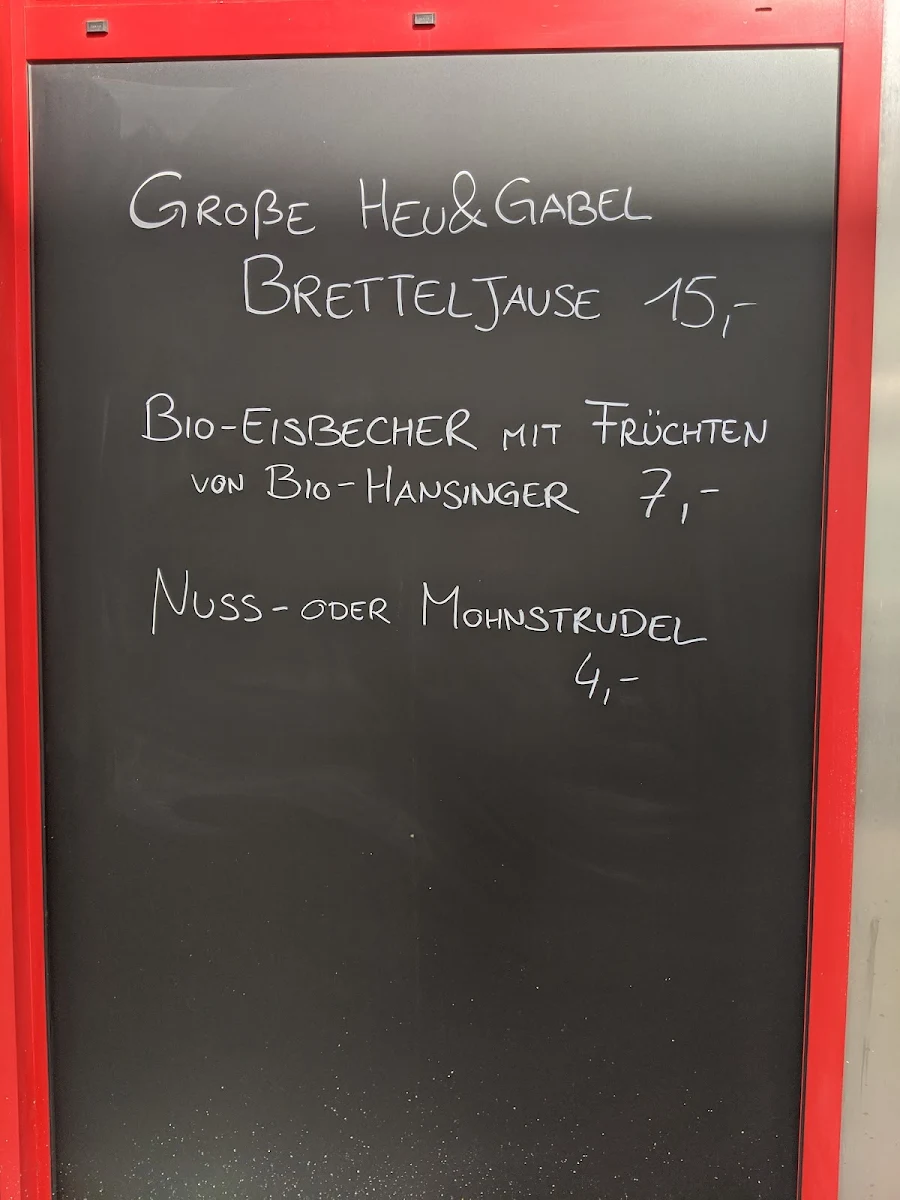 GROßE HEU&GABEL
BRETTELJAUSE 15,-
BIO-EISBECHER MIT FRÜCHTEN
VON BIO-HANSINGER 7,-
NUSS- ODER MOHNSTRUDEL
4,-